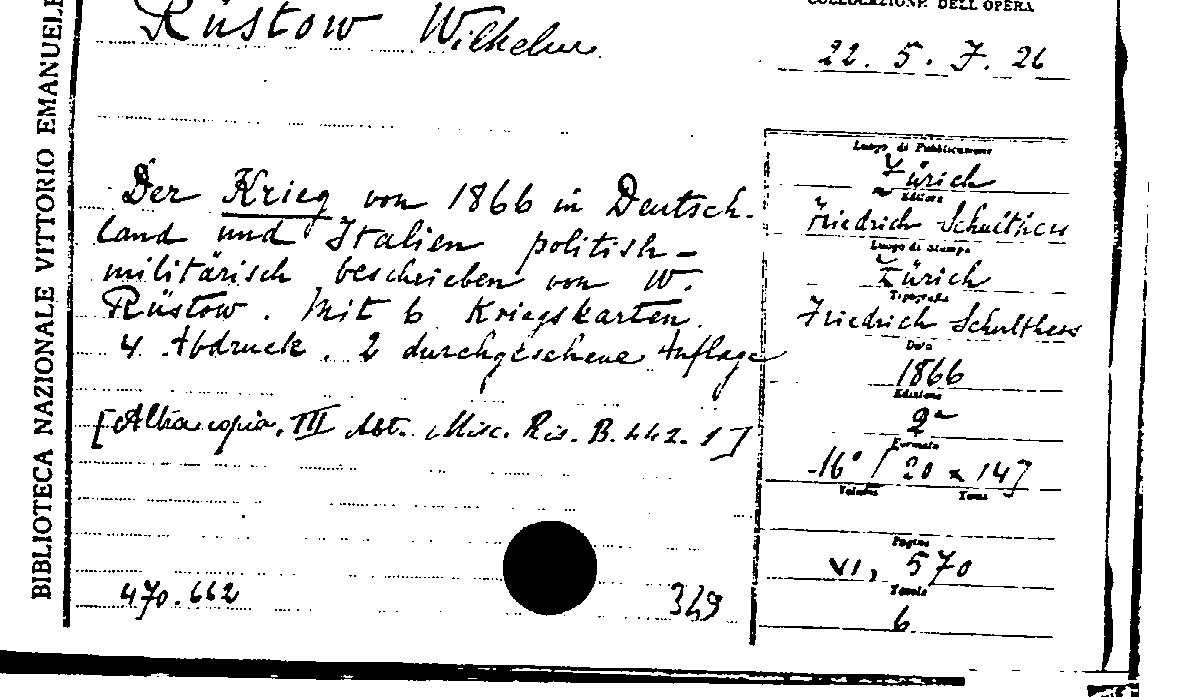 BIBLIOTECA NAZIONALE VITTORIO EMANUELE
Rüstow Wilhelm
COLLOCAZIONE DELL'OPERA
22. 5. J. 26
Der Krieg von 1866 in Deutsch-
land und Italien politish-
militärisch beschrieben von W.
Rüstow. Mit 6 Kriegskarten.
4 Abdruck. 2 durchgesehene Auflage
[Altra copia. III Abt. Misc. Ris. B. 442. 1]
470.662
349
Luogo di Pubblicazione
Zürich
Editore
Friedrich Schulthess
Luogo di stampa
Zürich
Tipografia
Friedrich Schulthess
Data
1866
Edizione
2ª
Formato
16° [20 x 14]
Volume Tomi
Pagine
VI, 570
Tavole
6